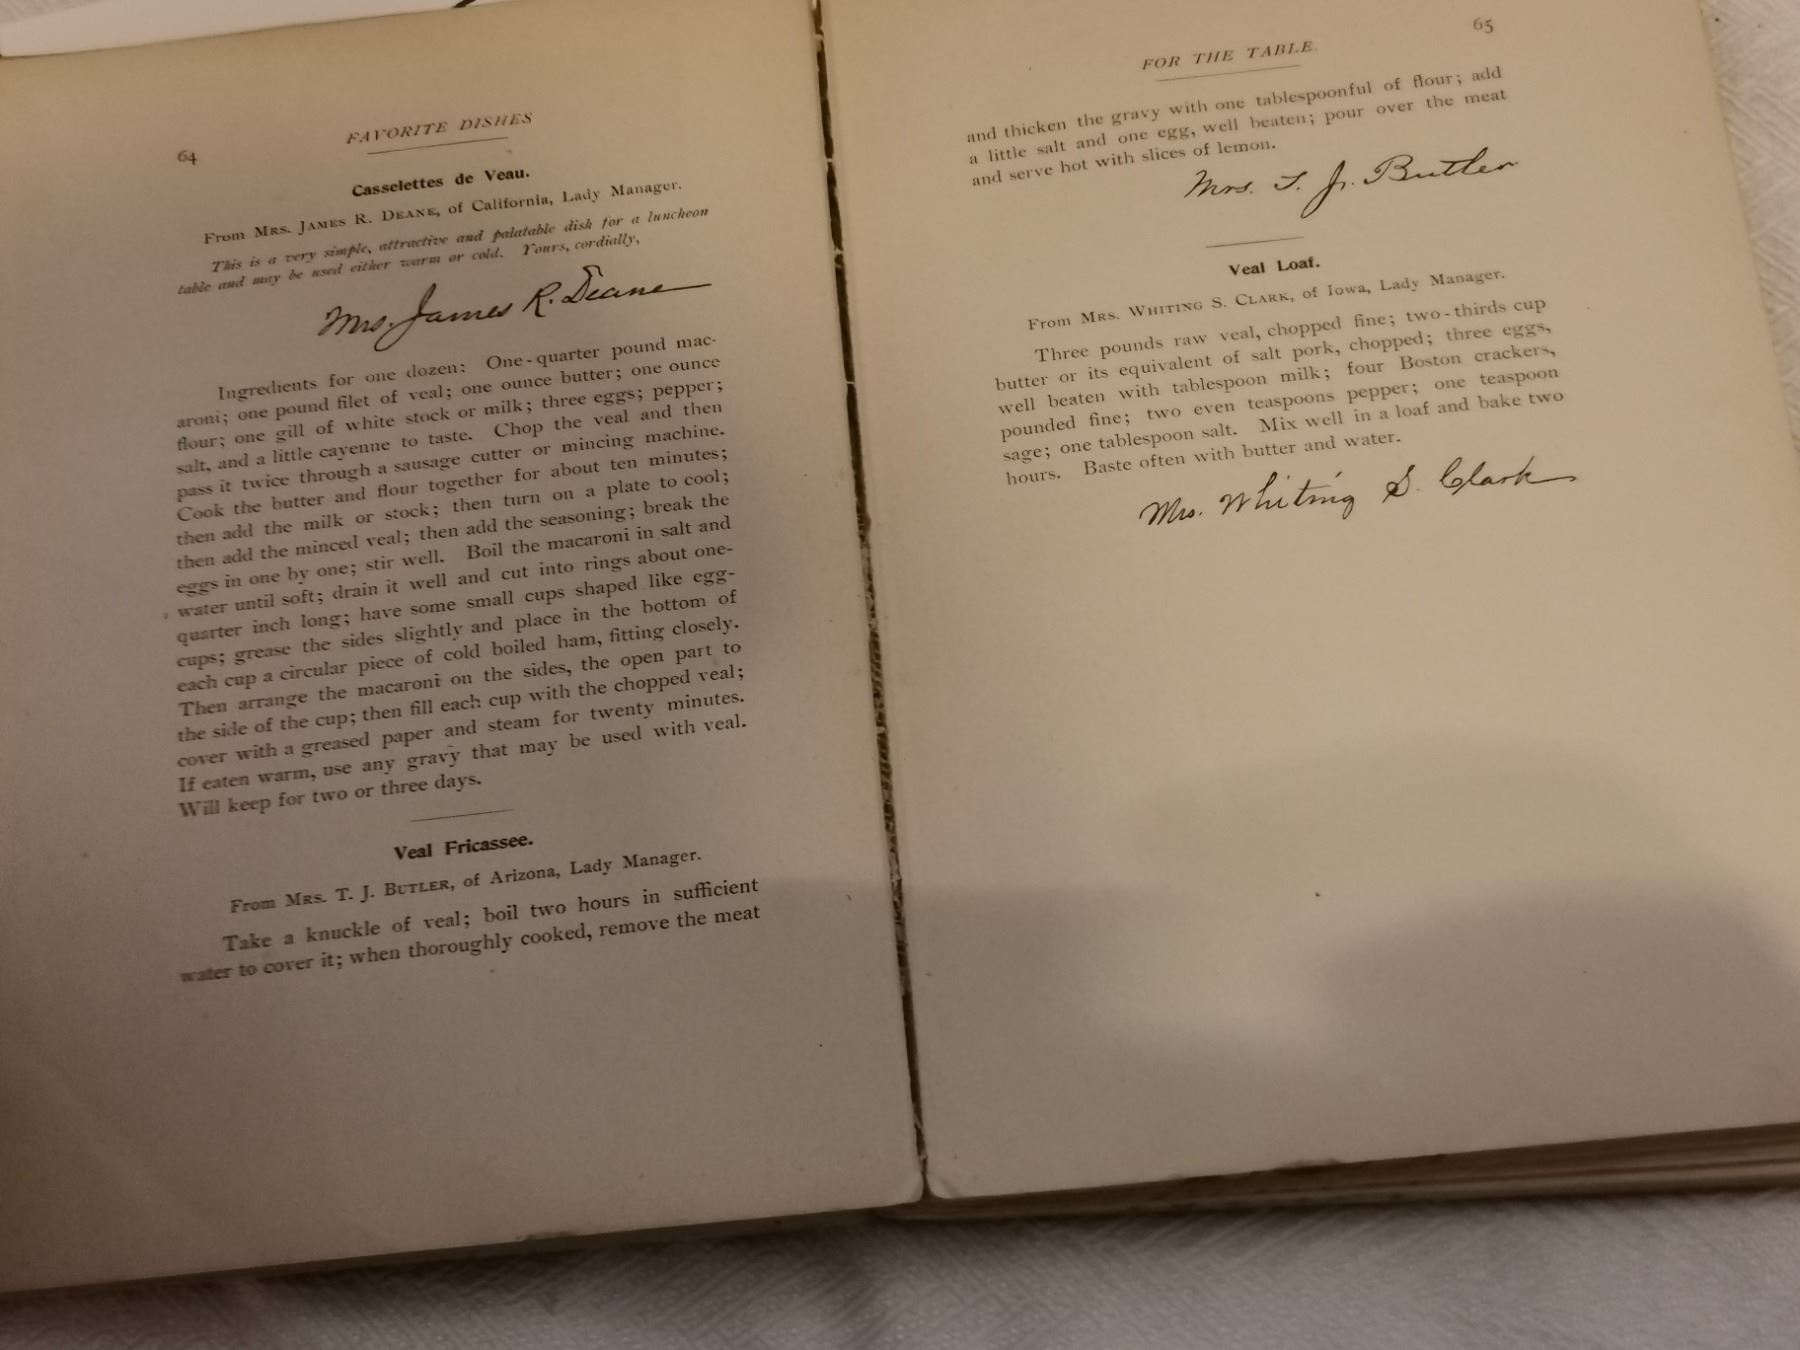 64
FAVORITE DISHES
Casselettes de Veau.
From MRS. JAMES R. DEANE, of California, Lady Manager.
This is a very simple, attractive and palatable dish for a luncheon
table and may be used either warm or cold. Yours, cordially,
Mrs. James R. Deane
Ingredients for one dozen: One-quarter pound mac-
aroni; one pound filet of veal; one ounce butter; one ounce
flour; one gill of white stock or milk; three eggs; pepper;
salt, and a little cayenne to taste. Chop the veal and then
pass it twice through a sausage cutter or mincing machine.
Cook the butter and flour together for about ten minutes;
then add the milk or stock; then turn on a plate to cool;
then add the minced veal; then add the seasoning; break the
eggs in one by one; stir well. Boil the macaroni in salt and
water until soft; drain it well and cut into rings about one-
quarter inch long; have some small cups shaped like egg-
cups; grease the sides slightly and place in the bottom of
each cup a circular piece of cold boiled ham, fitting closely.
Then arrange the macaroni on the sides, the open part to
the side of the cup; then fill each cup with the chopped veal;
cover with a greased paper and steam for twenty minutes.
If eaten warm, use any gravy that may be used with veal.
Will keep for two or three days.
Veal Fricassee.
From MRS. T. J. BUTLER, of Arizona, Lady Manager.
Take a knuckle of veal; boil two hours in sufficient
water to cover it; when thoroughly cooked, remove the meat
FOR THE TABLE.
65
and thicken the gravy with one tablespoonful of flour; add
a little salt and one egg, well beaten; pour over the meat
and serve hot with slices of lemon.
Mrs. T. J. Butler
Veal Loaf.
From MRS. WHITING S. CLARK, of Iowa, Lady Manager.
Three pounds raw veal, chopped fine; two-thirds cup
butter or its equivalent of salt pork, chopped; three eggs,
well beaten with tablespoon milk; four Boston crackers,
pounded fine; two even teaspoons pepper; one teaspoon
sage; one tablespoon salt. Mix well in a loaf and bake two
hours. Baste often with butter and water.
Mrs. Whiting S. Clark